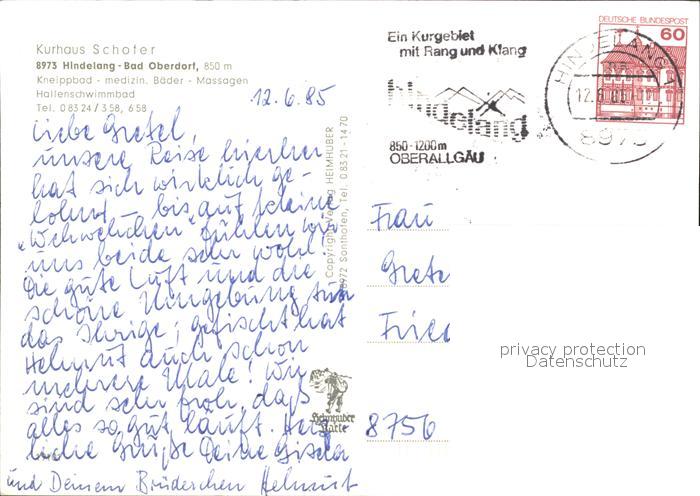 Kurhaus Schofer
8973 Hindelang - Bad Oberdorf, 850 m
Kneippbad - medizin. Bäder - Massagen
Hallenschwimmbad
Tel. 08324/358, 658
12.6.85
Liebe Gretel,
unsere Reise hierher
hat sich wirklich ge-
lohnt - bis auf kleine
"Wehwehchen" fühlen wir
uns beide sehr wohl!
Die gute Luft und die
schöne Umgebung tun
das Ihrige; gefischt hat
Helmut auch schon
mehrere Male! Wir
sind sehr froh, daß
alles so gut läuft. Herz-
liche Grüße Deine Gisela
und Deinem Brüderchen Helmut
Copyright Verlag HEIMHUBER
8972 Sonthofen, Tel. 08321-1470
Heimhuber
Karte
Ein Kurgebiet
mit Rang und Klang
hindelang
850-1200m
OBERALLGÄU
HINDELANG 1
12.6.85
8973
DEUTSCHE BUNDESPOST
60
Frau
Grete
8756
privacy protection
Datenschutz